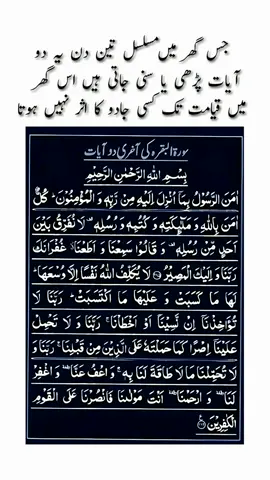 جس گھر میں مسلسل تین دن یہ دو
آیات پڑھی یا سنی جاتی ہیں اس گھر
میں قیامت تک کسی جادو کا اثر نہیں ہوتا
سورۃ البقرہ کی آخری دو آیات
بِسْمِ اللهِ الرَّحْمٰنِ الرَّحِيْمِ
اٰمَنَ الرَّسُوْلُ بِمَاۤ اُنْزِلَ اِلَيْهِ مِنْ رَّبِّهٖ وَ الْمُؤْمِنُوْنَ ؕ كُلٌّ
اٰمَنَ بِاللّٰهِ وَ مَلٰٓىِٕكَتِهٖ وَ كُتُبِهٖ وَ رُسُلِهٖ ۫ لَا نُفَرِّقُ بَيْنَ
اَحَدٍ مِّنْ رُّسُلِهٖ ۫ وَ قَالُوْا سَمِعْنَا وَ اَطَعْنَا ؗ غُفْرَانَكَ
رَبَّنَا وَ اِلَيْكَ الْمَصِيْرُ ۝ لَا يُكَلِّفُ اللّٰهُ نَفْسًا اِلَّا وُسْعَهَا ؕ
لَهَا مَا كَسَبَتْ وَ عَلَيْهَا مَا اكْتَسَبَتْ ؕ رَبَّنَا لَا
تُؤَاخِذْنَاۤ اِنْ نَّسِيْنَاۤ اَوْ اَخْطَاْنَا ۚ رَبَّنَا وَ لَا تَحْمِلْ
عَلَيْنَاۤ اِصْرًا كَمَا حَمَلْتَهٗ عَلَى الَّذِيْنَ مِنْ قَبْلِنَا ۚ رَبَّنَا وَ
لَا تُحَمِّلْنَا مَا لَا طَاقَةَ لَنَا بِهٖ ۚ وَ اعْفُ عَنَّا ۥ وَ اغْفِرْ
لَنَا ۥ وَ ارْحَمْنَا ۥ اَنْتَ مَوْلٰىنَا فَانْصُرْنَا عَلَى الْقَوْمِ
الْكٰفِرِيْنَ